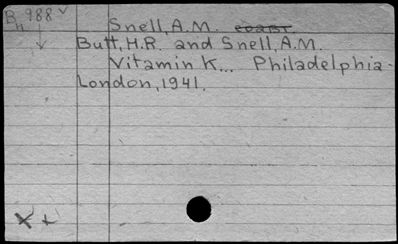 B 988
H
Snell, A.M.
Butt, H.R. and Snell, A.M.
Vitamin K... Philadelphia-
London, 1941.